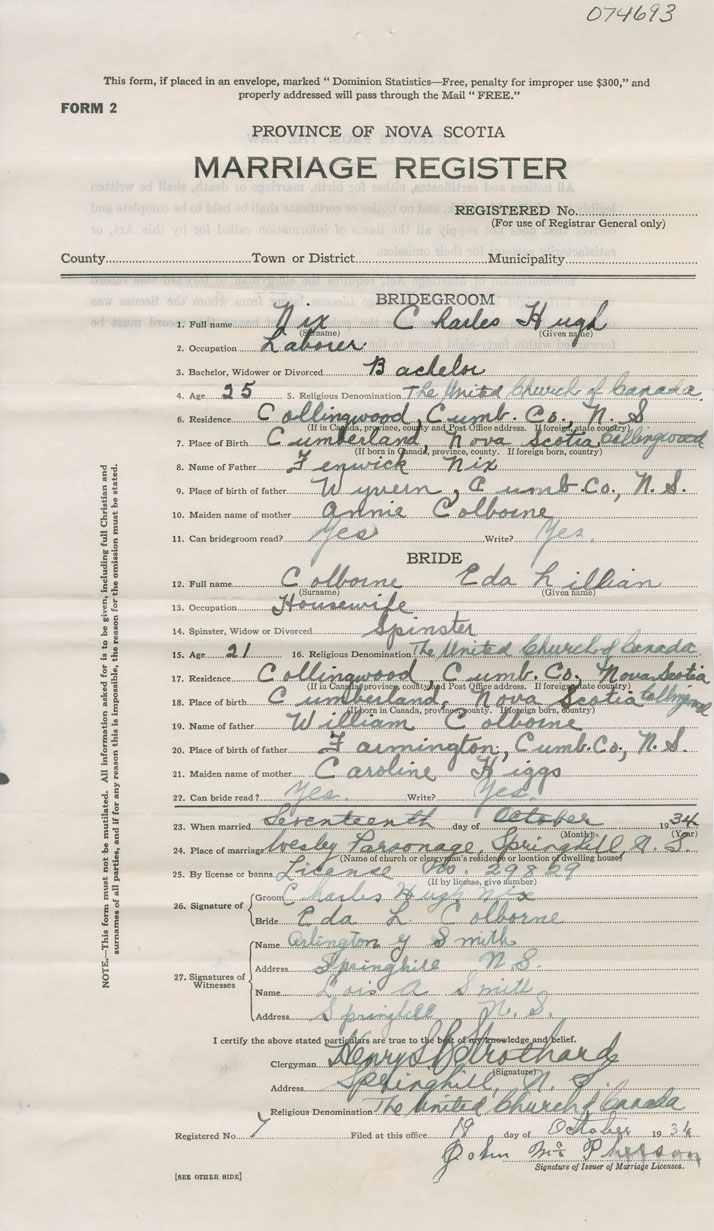 074693
This form, if placed in an envelope, marked “ Dominion Statistics—Free, penalty for improper use $300,” and
properly addressed will pass through the Mail “ FREE.”
FORM 2
PROVINCE OF NOVA SCOTIA
MARRIAGE REGISTER
REGISTERED No.
(For use of Registrar General only)
County Town or District Municipality
BRIDEGROOM
1. Full name Nix Charles Hugh
(Surname) (Given name)
2. Occupation Laborer
3. Bachelor, Widower or Divorced Bachelor
4. Age 25 5. Religious Denomination The United Church of Canada.
6. Residence Collingwood, Cumb. Co., N. S
(If in Canada, province, county and Post Office address. If foreign, state country)
7. Place of Birth Cumberland, Nova Scotia Collingwood
(If born in Canada, province, county. If foreign born, country)
8. Name of Father Fenwick Nix
9. Place of birth of father Wyvern, Cumb. Co., N. S.
10. Maiden name of mother Annie Colborne
11. Can bridegroom read? Yes Write? Yes.
BRIDE
12. Full name Colborne Eda Lillian
(Surname) (Given name)
13. Occupation Housewife
14. Spinster, Widow or Divorced Spinster
15. Age 21 16. Religious Denomination The United Church of Canada.
17. Residence Collingwood, Cumb. Co. Nova Scotia
(If in Canada, province, county and Post Office address. If foreign, state country)
18. Place of birth Cumberland, Nova Scotia Collingwood
(If born in Canada, province, county. If foreign born, country)
19. Name of father William Colborne
20. Place of birth of father Farmington, Cumb. Co., N. S.
21. Maiden name of mother Caroline Higgs
22. Can bride read? Yes. Write? Yes
23. When married Seventeenth day of October 1934
(Month) (Year)
24. Place of marriage Wesley Parsonage, Springhill, N. S.
(Name of church or clergyman's residence or location of dwelling house)
25. By license or banns License No. 29829
(If by license, give number)
26. Signature of Groom Charles Hugh Nix
Bride Eda L. Colborne
27. Signatures of Witnesses
Name Arlington y Smith
Address Springhill N S.
Name Lois A Smith
Address Springhill N. S.
I certify the above stated particulars are true to the best of my knowledge and belief.
Clergyman Henry Strothard
(Signature)
Address Springhill, N. S.
Religious Denomination The United Church of Canada
Registered No. 7 Filed at this office 19 day of October 1934
John McPherson
Signature of Issuer of Marriage Licenses.
[SEE OTHER SIDE]
NOTE.—This form must not be mutilated. All information asked for is to be given, including full Christian and
surnames of all parties, and if for any reason this is impossible, the reason for the omission must be stated.